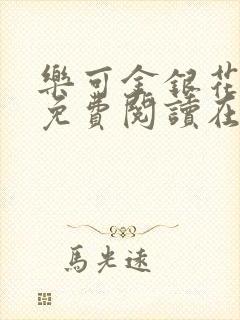 樂可金銀花
免費閱讀在
馬光遠